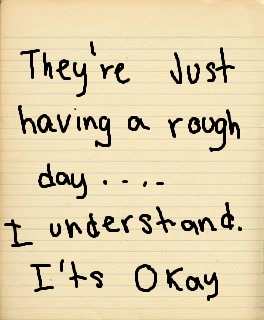 They're Just
having a rough
day . . . .
I understand.
I'ts Okay